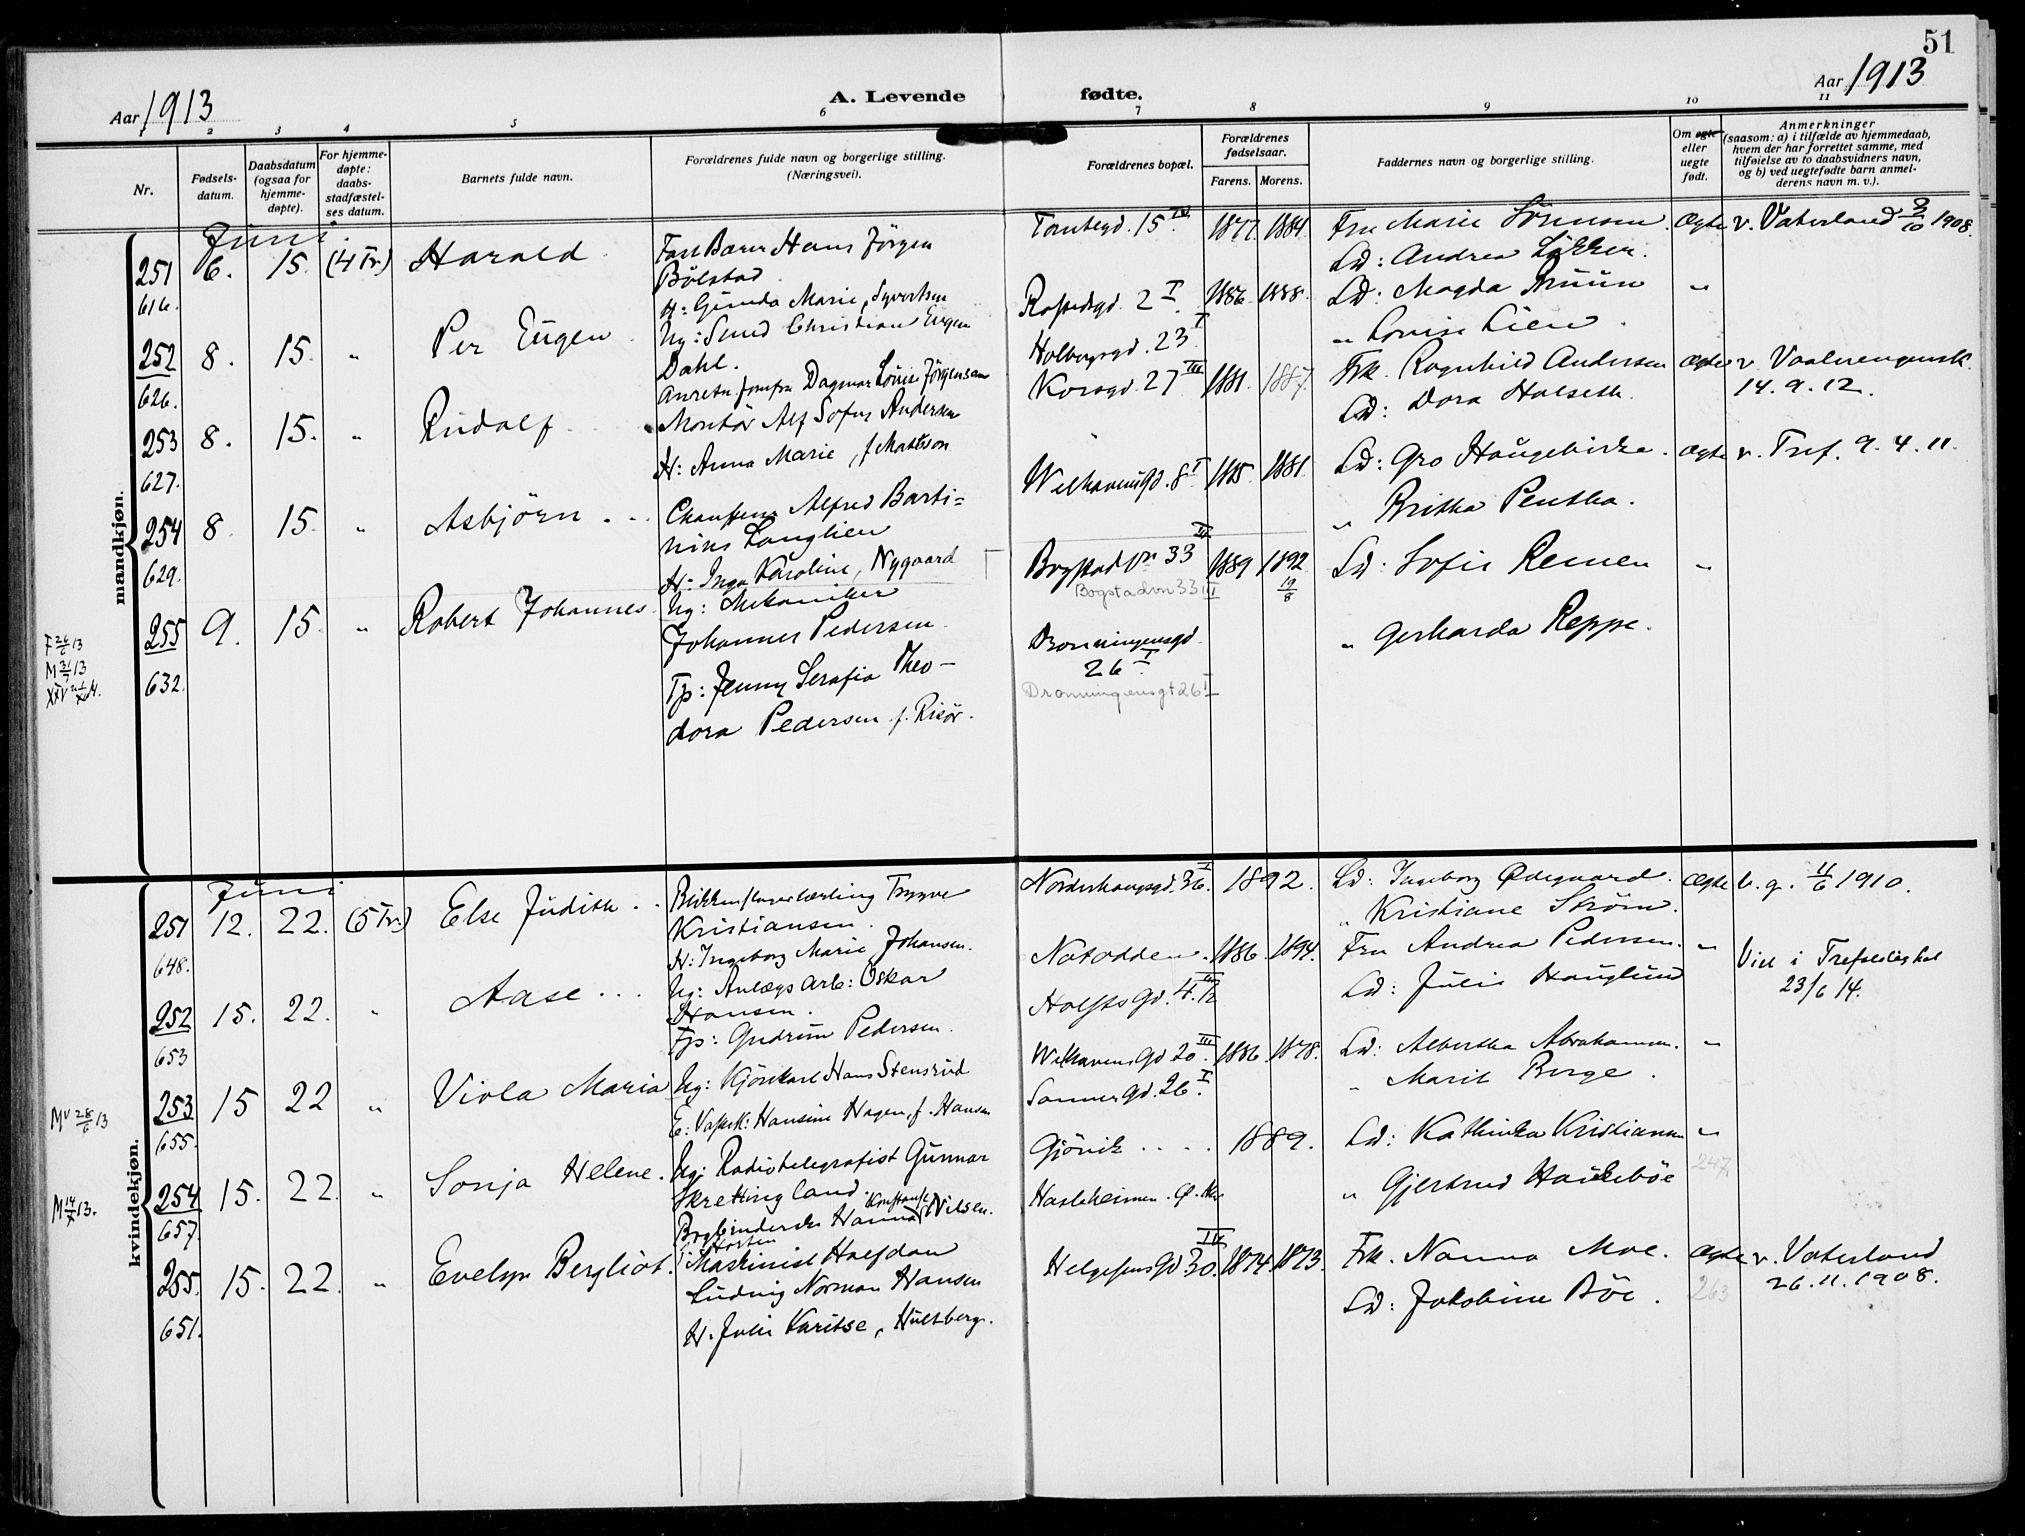 51
Aar 1913
A. Levende fødte.
Aar 1913
1 2 3 4 5 6 7 8 9 10 11
Nr.
Fødsels-
datum.
Daabsdatum
(ogsaa for
hjemme-
døpte).
For hjemme-
døpte:
daabs-
stadfæstel-
ses datum.
Barnets fulde navn.
Forældrenes fulde navn og borgerlige stilling.
(Næringsvei).
Forældrenes bopæl.
Forældrenes
fødselsaar.
Farens. Morens.
Faddernes navn og borgerlige stilling.
Om egte
eller
uegte
født.
Anmerkninger
(saasom: a) i tilfælde av hjemmedaab,
hvem der har forrettet samme, med
tilføielse av to daabsvidners navn,
og b) ved uegtefødte barn anmel-
derens navn m. v.).
mandkjøn.
Juni
251
616.
6. 15. (4 Tr.) Harald
Hans Jørgen
Bölstad
H: Gunda Marie, Syvertsen
15 IV 1877. 1884.
Fru Marie Sörensen
Ld: Andrea Løkken.
Ægte v. Vaterland 1908.
252
626.
8. 15. " Per Eugen
Ug: Christian Eugen
Dahl.
Dagmar Louise Jörgensen
2 I 1886. 1888.
Holbergsgd. 23 I
Ld: Magda Bruun "
" Louise Lien.
253
627.
8. 15. " Rudolf
Montör Alf Sofus Andersen
H: Anna Marie, f. Matteson
Korsgd. 27 III 1881. 1887.
Frk. Ragnhild Andersen
Ld: Dora Halseth.
Ægte v. Vaalerengensk.
14.9.12.
254
629.
8. 15. " Asbjörn
Alfred Barti-
nius Langlien
H: Inga Karoline, Nygaard
Welhavensgd. 8 I 1885 1881.
Ld: Gro Haugebirke.
" Britha Pentha.
Ægte v. Tref. 9.4.11.
255
632.
9. 15. " Robert Johannes
Ug: Mekaniker
Johannes Pedersen.
Tjp: Jenny Serafia Theo-
dora Pedersen f. Risör.
Bogstadvn 33 III 1889 1892
19/8
Bogstadvn 33 III
Dronningensgd
26 I
Dronningensgt 26 I
Ld: Sofie Remen "
" Gerharda Reppe.
kvindekjøn.
Juni
251
648.
12. 22. (5 Tr.) Else Judith
Trygve
Kristiansen.
H: Ingeborg Marie Johansen.
Norderhovsgd. 36 I. 1892.
Ld: Ingeborg Ødegaard.
" Kristiane Ström.
Ægte b. g. 11/6 1910.
252
653
15. 22. " Aase
Ug: Anlægs arb: Oskar
Hansen.
Tjp: Gudrun Pedersen.
Notodden. 1886. 1894.
Holstsgd. 4.
Fru Andrea Pedersen. "
Ld: Julie Hauglund
Viet i 
23/6 14.
253
655.
15 22 " Viola Maria
Ug: Kjörekarl Hans Stensrud
E: Vaskek: Hansine Hagen, f. Hansen
Welhavensgd 20 III. 1886. 1878.
Sannergd. 26 I.
Ld: Albertha Abrahamsen. "
" Marit Berge.
254
657.
15. 22. " Sonja Helene.
Ug: Radiotelegrafist Gunnar
Skrettingland
Bogbinderske Hanna Konstanse Nilsen.
Horten
Gjövik 1889.
Ld: Kathinka Kristiansen "
" Gjertrud Haukebøe
247
255.
651.
15. 22. " Evelyn Bergliot.
Maskinist Halfdan
Ludvig Norman Hansen
H. Julie Karitse, Hultberg.
Helgesensgd 30 IV. 1874. 1873.
Frk. Nanna Moe.
Ld: Jakobine Böe.
Ægte v. Vaterland
26.11.1908.
263